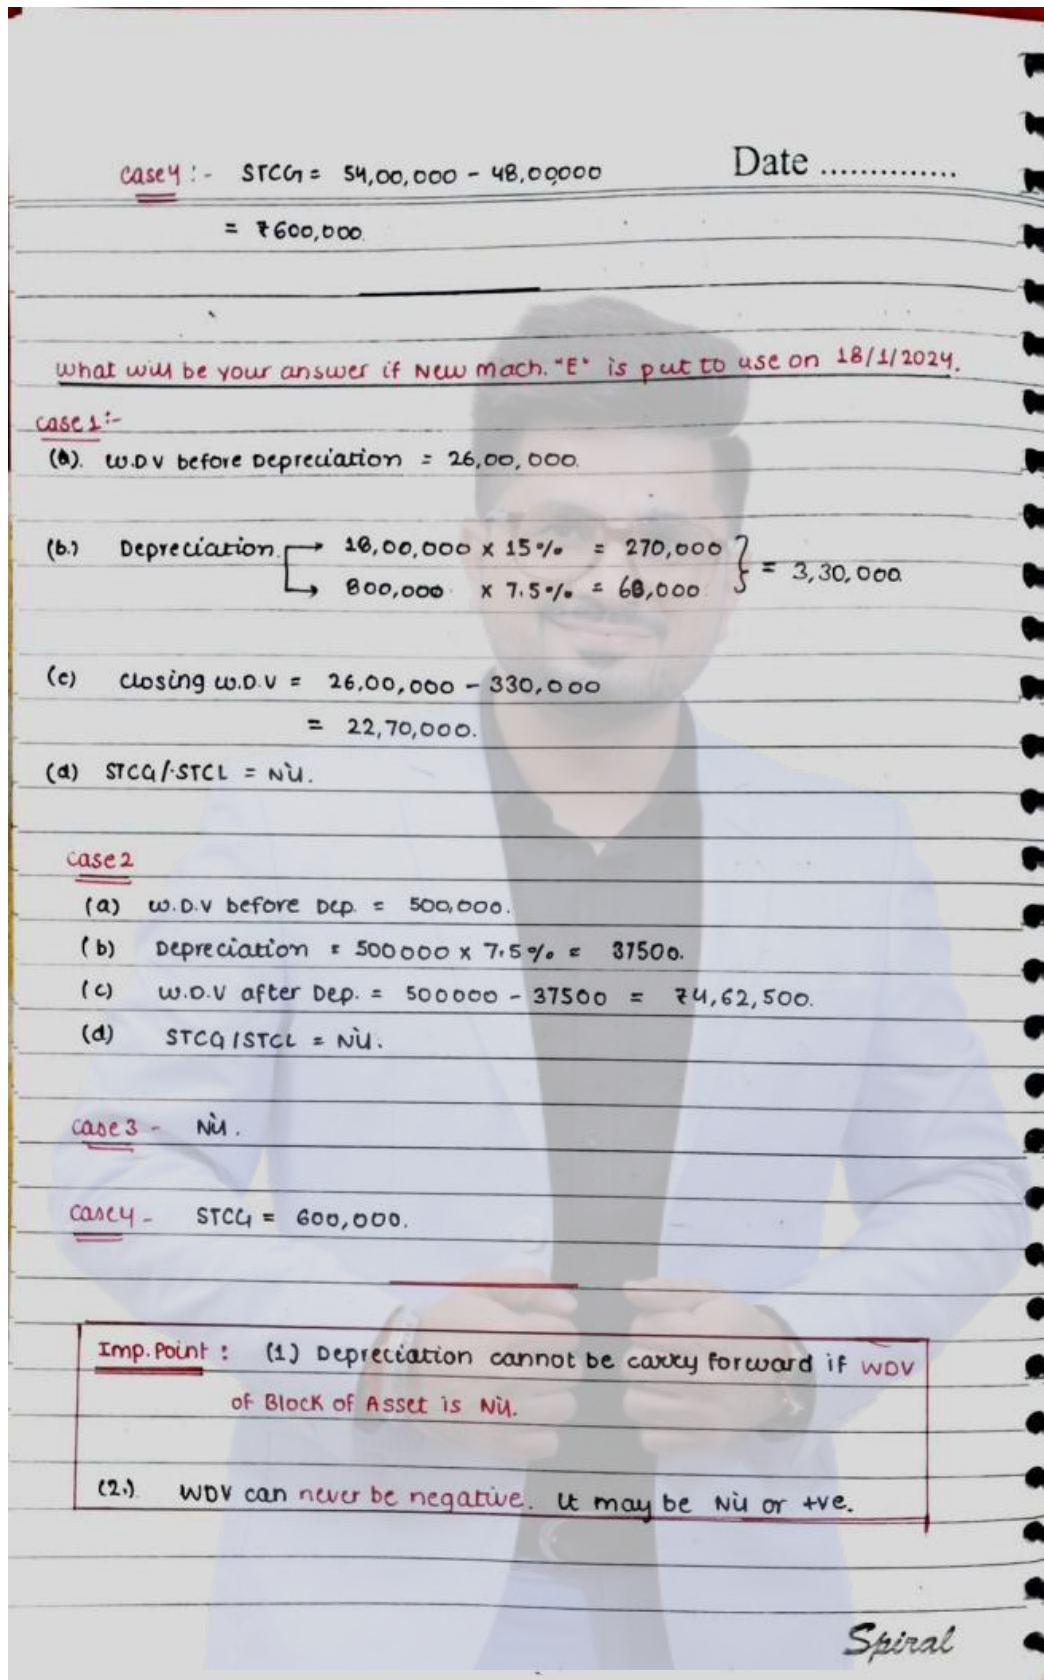 Case 4 :- STCG = 54,00,000 - 48,00,000
Date ..............
= ₹600,000.
What will be your answer if New Mach. "E" is put to use on 18/1/2024.
Case 1 :-
(a). W.D.V before Depreciation = 26,00,000.
(b.) Depreciation → 18,00,000 x 15% = 270,000
→ 800,000 x 7.5% = 60,000 } = 3,30,000
(c) Closing W.D.V = 26,00,000 - 330,000
= 22,70,000.
(d) STCG/STCL = Nil.
Case 2
(a) W.D.V before Dep. = 500,000.
(b) Depreciation = 500000 x 7.5% = 37500.
(c) W.D.V after Dep. = 500000 - 37500 = ₹4,62,500.
(d) STCG/STCL = Nil.
Case 3 - Nil.
Case 4 - STCG = 600,000.
Imp. Point : (1) Depreciation cannot be carry forward if WDV
of Block of Asset is Nil.
(2.) WDV can never be negative. It may be Nil or +ve.
Spiral